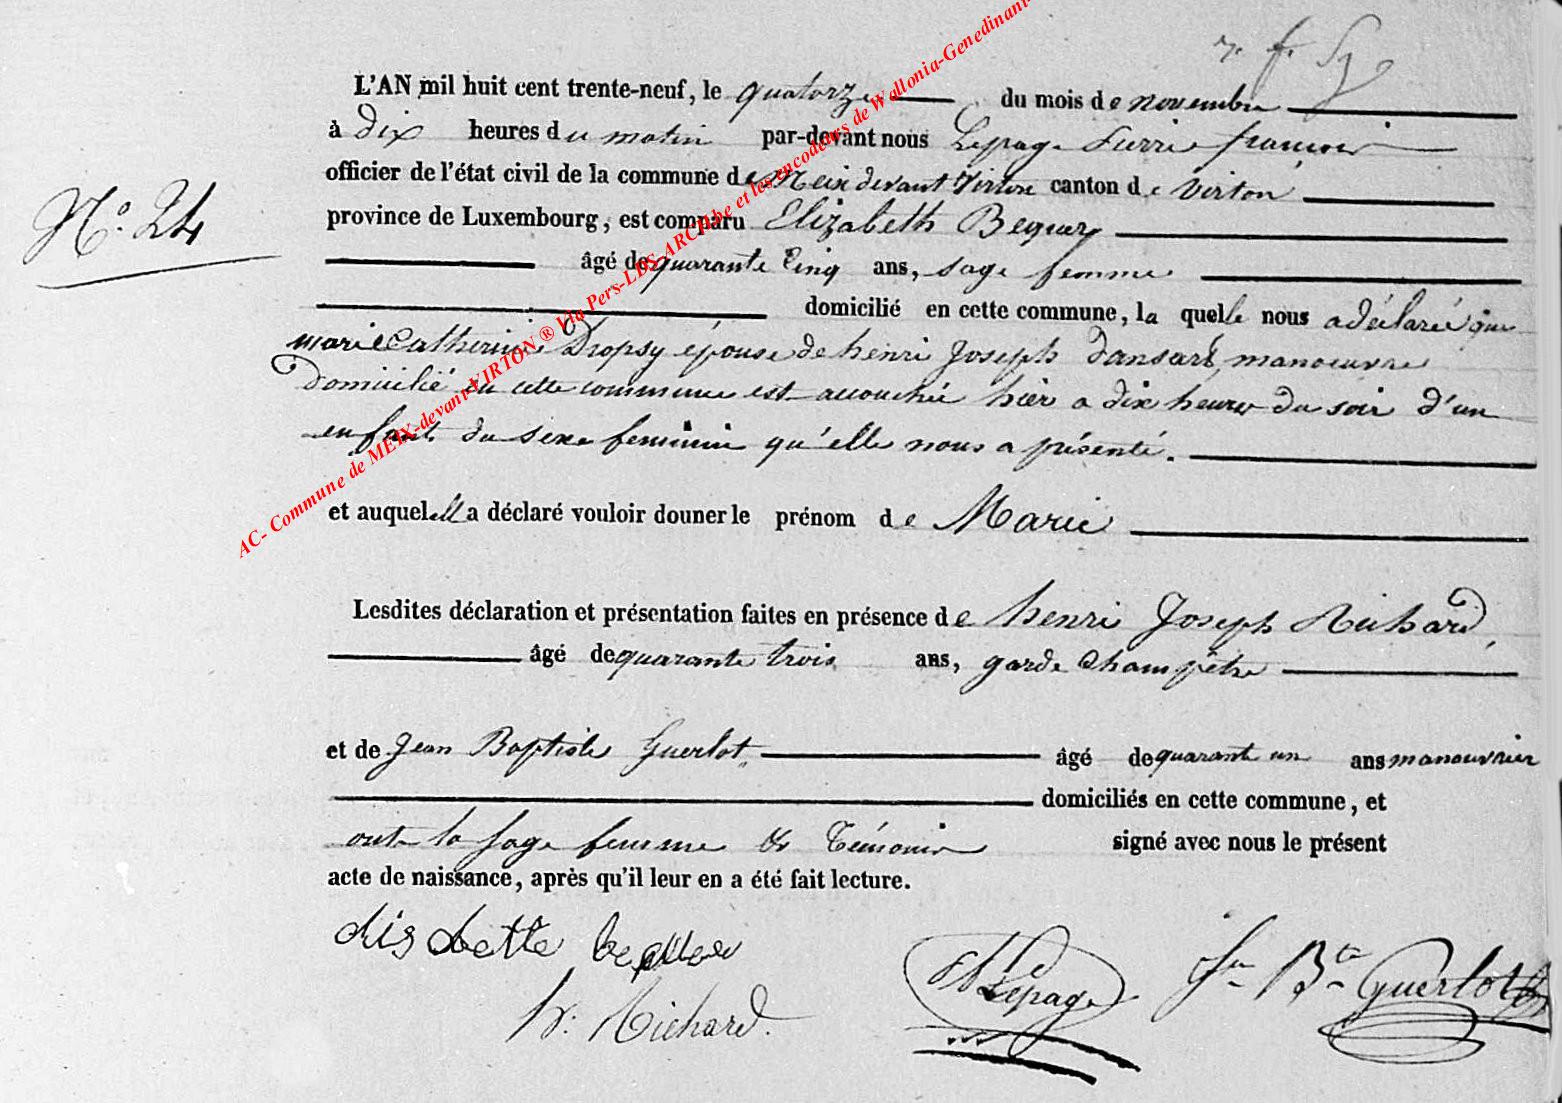 L'AN mil huit cent trente-neuf, le quatorze du mois de novembre
à dix heures du matin par-devant nous Lepage Pierre françois
officier de l'état civil de la commune de Meix devant Virton canton de Virton
N.° 24
province de Luxembourg, est comparu Elizabeth Bequer
âgé de quarante cinq ans, sage femme
domicilié en cette commune, la quelle nous a déclaré que
marie Catherine Dropsy épouse de henri Joseph dansart manoeuvre
domicilié en cette commune est accouchée hier a dix heures du soir d'un
enfant du sexe feminin qu'elle nous a présenté.
et auquel elle a déclaré vouloir douner le prénom de Marie
Lesdites déclaration et présentation faites en présence de henri Joseph Richard,
âgé de quarante trois ans, garde champêtre
et de Jean Baptiste Guerlot âgé de quarante un ans manouvrier
domiciliés en cette commune, et
ont la sage femme & témoins signé avec nous le présent
acte de naissance, après qu'il leur en a été fait lecture.
Lepage
Jn Bte Guerlot
h: Richard.
AC- Commune de MEIX-devant-VIRTON ® Via Pers-LDS-ARCH.be et les encodeurs de Wallonia-Genedinant